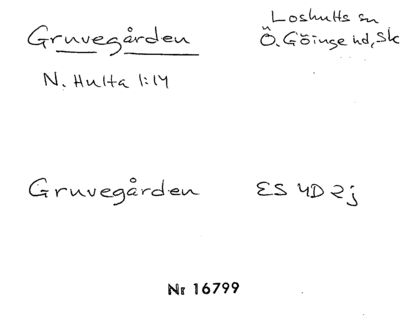 Gruvegården
Loshults sn
Ö. Göinge hd, Sk
N. Hulta 1:14
Gruvegården ES 4D 2j
Nr 16799